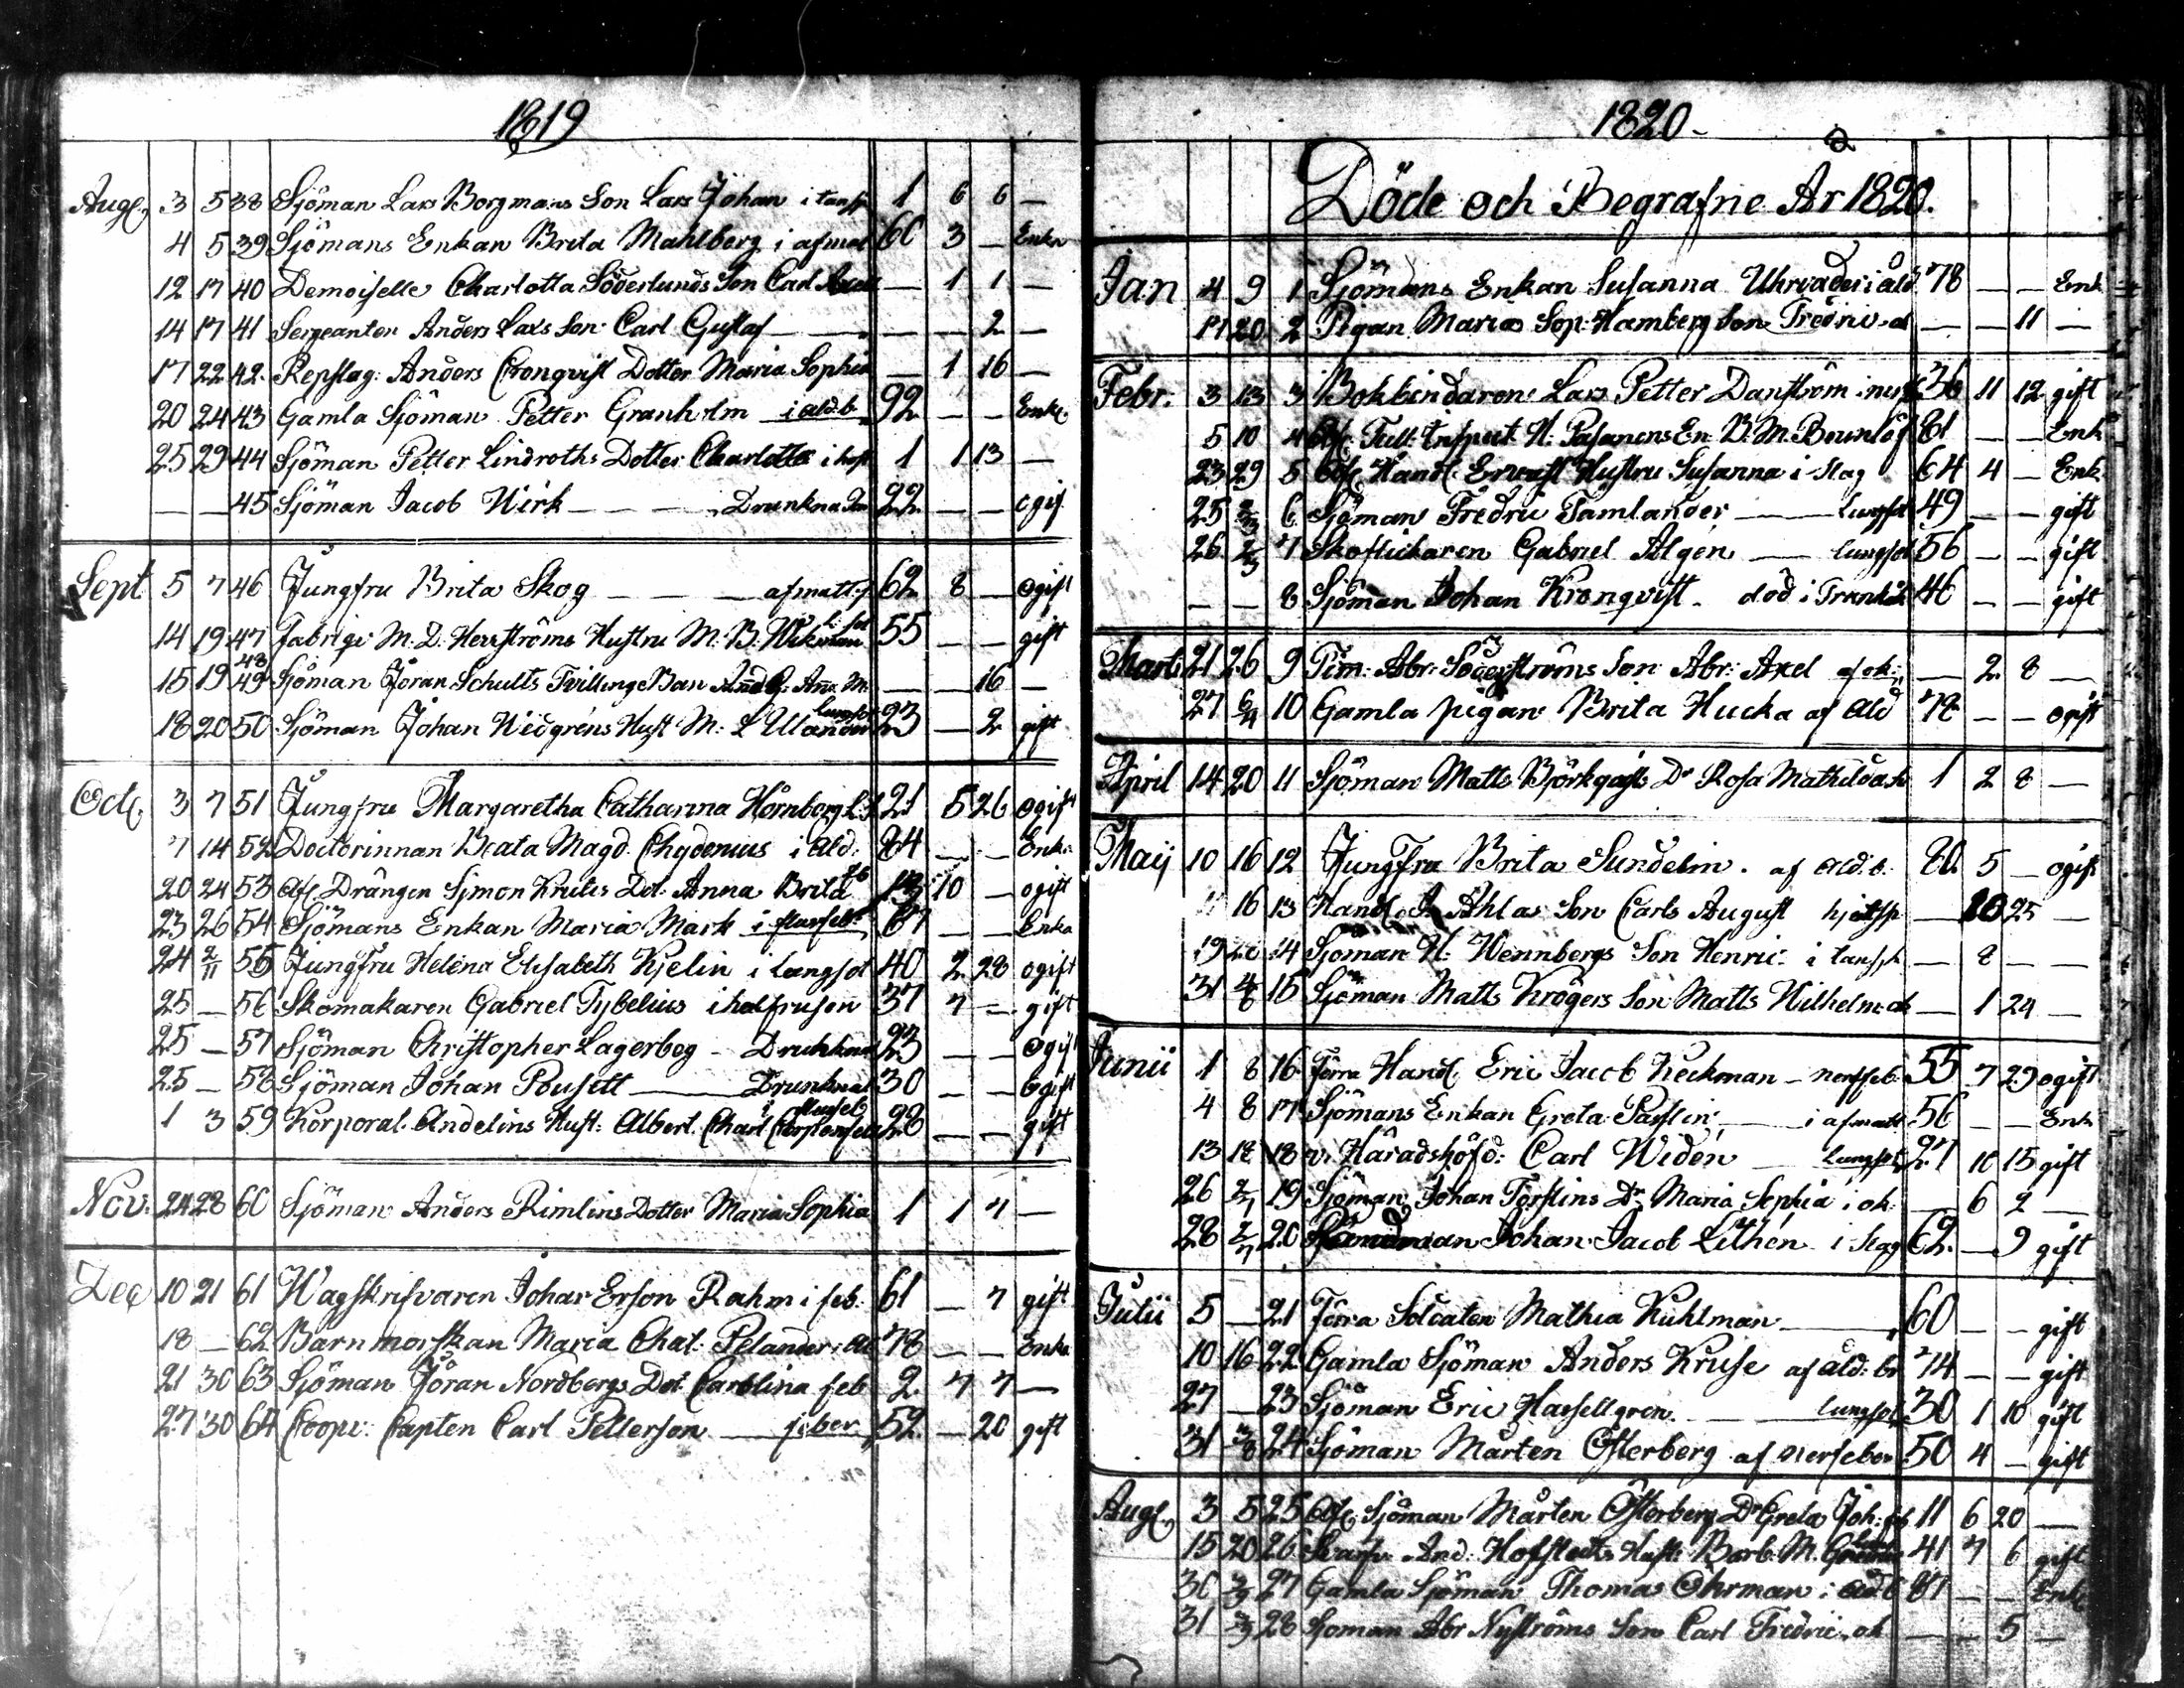 1819
Aug. 3 5 38 Sjöman Lars Borgmans Son Lars Johan i tansp 1 6 6 —
4 5 39 Sjömans Enkan Brita Mahlberg i afmat 60 3 — Enka
12 17 40 Demoiselle Charlotta Söderlunds Son Carl Axel — 1 1 —
14 17 41 Sergeanten Anders Lax's Son Carl Gustaf — — — 2 —
17 22 42 Repslag: Anders Cronqvist Dotter Maria Sophia — 1 16 —
20 24 43 Gamla Sjöman Petter Granholm i åld.b. 92 — — Enkl.
25 29 44 Sjöman Petter Lindroths Dotter Charlotta i host 1 1 13 —
— — 45 Sjöman Jacob Wirk — — — Drunknad 22 — — ogif
Sept 5 7 46 Jungfru Brita Skog — — — afmatt. 62 8 — ogift
14 19 47 Fabriqr M. D. Herrströms Hustru M: B: Wikman 55 — — gift
15 19 48 49 Sjöman Jöran Schults Tvillinge Barn And G: Ann M. — — 16 —
18 20 50 Sjöman Johan Widgréns Hust M: L Ulander lungsot 23 — 2 gift
Oct. 3 7 51 Jungfru Margaretha Catharina Hörnberg L.s 21 5 26 ogift
7 14 52 Doctorinnan Beata Magd. Chydenius i åld. 84 — — Enka
20 24 53 Afl. Drängen Simon Krutes Dot: Anna Brita 13 10 — ogift
23 26 54 Sjömans Enkan Maria Mark i flussfeb. 67 — — Enka
24 2/11 55 Jungfru Helena Elisabeth Kjelin i lungsot 40 2 28 ogift
25 — 56 Skomakaren Gabriel Tybelius ihelfrusen 37 7 — gift
25 — 57 Sjöman Christopher Lagerbog — Drunknat 23 — — ogift
25 — 58 Sjöman Johan Pousett — Drunknat 30 — — ogift
1 3 59 Korporal Andelins Hust: Albert. Charl 28 — — gift
Nov: 24 28 60 Sjöman Anders Rimlins Dotter Maria Sophia 1 1 7 —
Dec 10 21 61 Wagskrifvaren Johan Erson Rahm i feb. 61 — 7 gift
18 — 62 Barnmorskan Maria Chat: Pelander: ål 78 — — Enka
21 30 63 Sjöman Jöran Nordbergs Dot Carolina feb 2 7 7 —
27 30 64 Coopv: Capten Carl Petterson — feber 52 — 20 gift
1820
Döde och Begrafne År 1820.
Jan 4 9 1 Sjömans Enkan Susanna Uhrväder i åld 78 — — Enk
17 20 2 Pigan Maria Sop: Hamberg Son Fredric ok — — 11 —
Febr: 3 13 3 Bokbindaren Lars Petter Danström i nerf 36 11 12 gift
5 10 4 Afl. Tull Inspect. H. Pasanens En. B. M. Beunlöf 81 — — Enk
23 29 5 Afl. Handl. Hustru Susanna i slag 64 4 — Enk.
25 2/3 6 Sjöman Fredric Tamlander — lungsot 49 — — gift
26 2/3 7 Skoflickaren Gabriel Algén — lungsot 56 — — gift
— — 8 Sjöman Johan Kronqvist. död i 46 — — gift
Mart: 21 26 9 Tim: Abr: Söderströms Son Abr: Axel af ok: — 2 8 —
27 6/4 10 Gamla pigan Brita Hucka af åld 78 — — ogift
April 14 20 11 Sjöman Matts Björkqvists Dr Rosa Mathilda 1 2 8 —
Maij 10 16 12 Jungfru Brita Sundelin. af åld.b. 80 5 — ogift
11 16 13 Handl. A Ahlas Son Carls August — 10 25 —
19 20 14 Sjöman H: Wennbergs Son Henric i tansp — 8 — —
31 4/6 15 Sjöman Matts Krögers Son Matts Wilhelm ok — 1 24 —
Junii 1 8 16 Förra Handl. Eric Jacob Keckman — nerffeb 55 7 29 ogift
4 8 17 Sjömans Enkan Greta Passlin — i afmatt. 56 — — Enk
13 18 18 v. Häradshöfd: Carl Widén — lungsot 27 10 15 gift
26 2/7 19 Sjöman Johan Törslins Dr Maria Sophia i ok: — 6 2 —
28 2/7 20 Johan Jacob Lithén i slag 62 — 9 gift
Julii 5 — 21 Förra Soldaten Mathia Kuhlman — 60 — — gift
10 16 22 Gamla Sjöman Anders Kruse af åld: br 74 — — gift
27 — 23 Sjöman Eric Hassellgren. — lungsot 30 1 10 gift
31 3/8 24 Sjöman Mårten Österberg af nerfeber 50 4 — gift
Aug. 3 5 25 Afl. Sjöman Mårten Österberg Dr Greta Joh: feb 11 6 20 —
15 20 26 And: Hofstedts Hust: Barb: M. 41 7 6 gift
30 3/9 27 Gamla Sjöman Thomas Öhrman i åld b 87 — — Enkl
31 3/9 28 Sjöman Abr Nyströms Son Carl Fredric ok — — 5 —